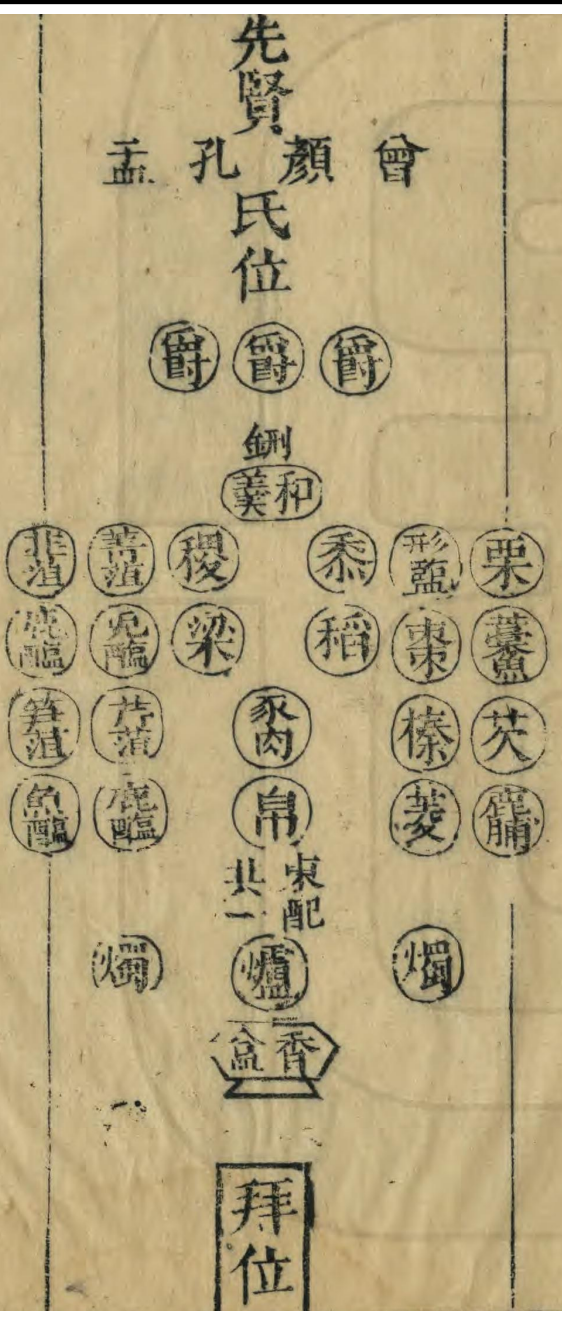 先賢
曾 顏 孔 孟
氏位
爵 爵 爵
鉶
和羹
栗 形鹽 黍 稷 菁菹 韭菹
棗 稻 梁 兔醢
芡 榛 豕肉 芹菹 笋菹
鹿脯 菱 帛 鹿醢 魚醢
東配
共一
燭 爐 燭
香盒
拜位